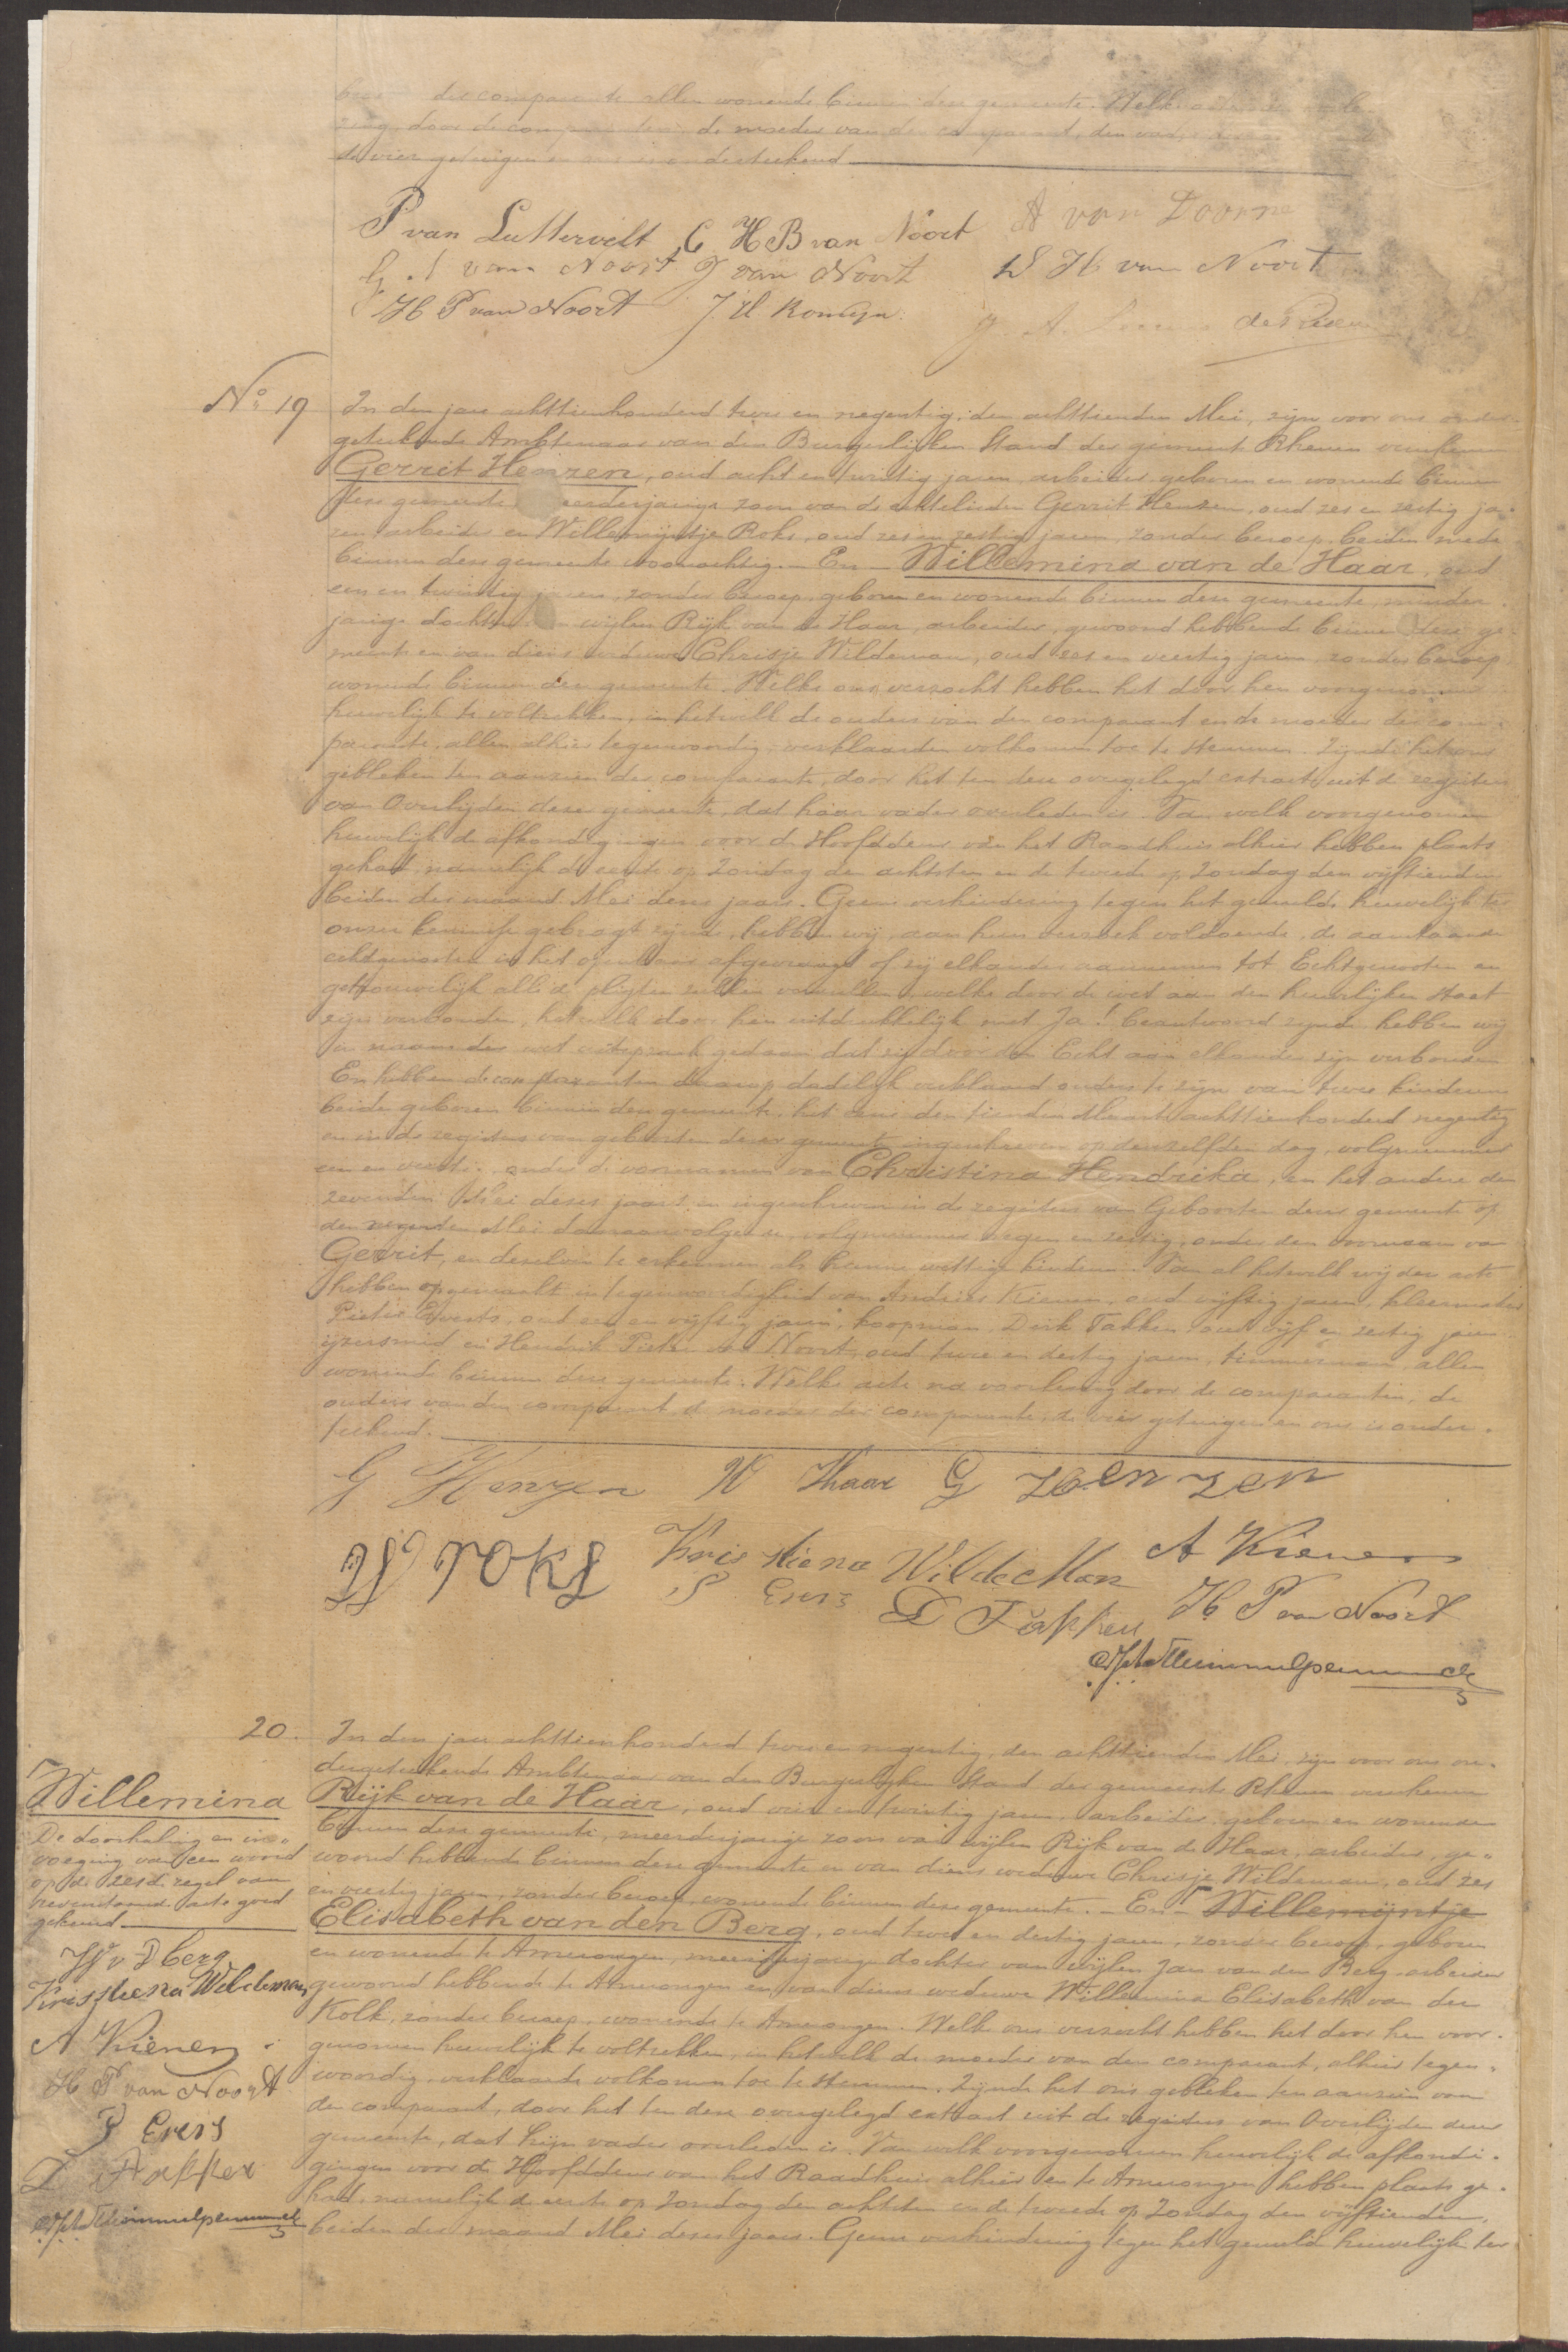 der comparante allen wonende binnen deze gemeente. Welke acte
zing, door de comparanten, de moeder van den comparant, den vader
de vier getuigen en ons is onderteekend
P van Luttervelt C H B van Noort A van Doorne
G. J van Noort J van Noort D H van Noort
H P van Noort J H Romijn
No 19
In den jare achttienhonderd twee en negentig, den achttienden Mei, zijn voor ons onder-
geteekende Ambtenaar van den Burgerlijken Stand der gemeente Rhenen verschenen
Gerrit Henzen, oud acht en twintig jaren, arbeider, geboren en wonende binnen
deze gemeente, meerderjarige zoon van de echtelieden Gerrit Henzen, oud zes en zestig ja-
ren arbeider en Willemijntje Roks, oud zes en zestig jaren, zonder beroep, beiden mede
binnen deze gemeente woonachtig. – En – Willemina van de Haar, oud
een en twintig jaren, zonder beroep, geboren en wonende binnen deze gemeente, minder-
jarige dochter van wijlen Rijk van de Haar, arbeider, gewoond hebbende binnen deze ge-
meente en van diens weduwe Chrisje Wildeman, oud zes en veertig jaren, zonder beroep
wonende binnen deze gemeente. Welke ons verzocht hebben het door hen voorgenomen
huwelijk te voltrekken, in hetwelk de ouders van den comparant en de moeder der com-
parante, allen alhier tegenwoordig, verklaarden volkomen toe te stemmen. Zijnde het ons
gebleken ten aanzien der comparante, door het ten deze overgelegd extract uit de registers
van Overlijden dezer gemeente, dat haar vader overleden is. Van welk voorgenomen
huwelijk de afkondigingen voor de Hoofddeur van het Raadhuis alhier hebben plaats
gehad, namelijk de eerste op Zondag den achtsten en de tweede op Zondag den vijftienden
beiden der maand Mei dezes jaars. Geene verhindering tegen het gemelde huwelijk ter
onzer kennisse gebragt zijnde, hebben wij, aan hun verzoek voldoende, de aanstaande
echtgenooten in het openbaar afgevraagd of zij elkander aannemen tot Echtgenooten en
getrouwelijk alle de pligten zullen vervullen, welke door de wet aan den huwelijken staat
zijn verbonden, hetwelk door hen uitdrukkelijk met Ja! beantwoord zijnde hebben wij
in naam der wet uitspraak gedaan dat zij door den Echt aan elkander zijn verbonden
En hebben de comparanten daarop dadelijk verklaard ouders te zijn van twee kinderen
beide geboren binnen deze gemeente, het eene den tienden Maart achttienhonderd negentig
en in de registers van geboorten dezer gemeente ingeschreven op denzelfden dag, volgnummer
een en veertig, onder de voornamen van Christina Hendrika, en het andere den
zevenden Mei dezes jaars en ingeschreven in de registers van Geboorten dezer gemeente op
den negenden Mei daaraanvolgende, volgnummer negen en zestig, onder den voornaam van
Gerrit, en dezelven te erkennen als hunne wettige kinderen. Van al hetwelk wij deze acte
hebben opgemaakt in tegenwoordigheid van Andries Kienen, oud vijftig jaren, kleermaker
Pieter Everts, oud een en vijftig jaren, koopman, Dirk Takken oud vijf en zestig jaren
ijzersmid en Hendrik Pieter van Noort, oud twee en dertig jaren, timmerman, allen
wonende binnen deze gemeente. Welke acte na voorlezing door de comparanten, de
ouders van den comparant, de moeder der comparante, de vier getuigen en ons is onder-
teekend.
G Henzen W Vhaar G Henzen
W roks Kris tiena Wilde Man A Kienen
P Evers D Takken H P van Noort
20.
In den jare achttienhonderd twee en negentig, den achttienden Mei, zijn voor ons on-
dergeteekende Ambtenaar van den Burgerlijken Stand der gemeente Rhenen verschenen
Rijk van de Haar, oud vier en twintig jaren, arbeider, geboren en wonende
binnen deze gemeente, meerderjarige zoon van wijlen Rijk van de Haar, arbeider, ge-
woond hebbende binnen deze gemeente en van diens weduwe Chrisje Wildeman, oud zes
en veertig jaren, zonder beroep, wonende binnen deze gemeente. – En – Willemijntje
Elisabeth van den Berg, oud twee en dertig jaren, zonder beroep, geboren
en wonende te Amerongen, meerderjarige dochter van wijlen Jan van den Berg, arbeider
gewoond hebbende te Amerongen en van diens weduwe Willemina Elisabeth van der
Kolk, zonder beroep, wonende te Amerongen. Welke ons verzocht hebben het door hen voor-
genomen huwelijk te voltrekken, in hetwelk de moeder van den comparant, alhier tegen-
woordig, verklaarde volkomen toe te stemmen. Zijnde het ons gebleken ten aanzien van
den comparant, door het ten deze overgelegd extract uit de registers van Overlijden dezer
gemeente, dat zijn vader overleden is. Van welk voorgenomen huwelijk de afkondi-
gingen voor de Hoofddeur van het Raadhuis alhier en te Amerongen hebben plaats ge-
had, namelijk de eerste op Zondag den achtsten en de tweede op Zondag den vijftienden,
beiden der maand Mei dezes jaars. Geene verhindering tegen het gemelde huwelijk ter
Willemina
De doorhaling en in-
voeging van een woord
op de zesde regel van
nevenstaande acte goed
gekeurd.
W v Dberg
Kresstiena Weldeman
A Kienen
H P van Noort
P Evers
D Takken